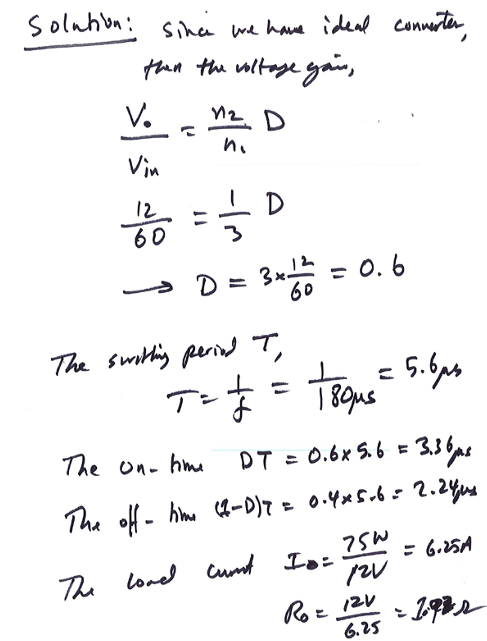 Solution: Since we have ideal converter,
then the voltage gain,
Vo / Vin = n2 / n1 D
12 / 60 = 1 / 3 D
→ D = 3 × 12 / 60 = 0.6
The switching period T,
T = 1 / f = 1 / 180μs = 5.6μs
The on-time DT = 0.6 × 5.6 = 3.36μs
The off-time (1-D)T = 0.4 × 5.6 = 2.24μs
The load current Io = 75W / 12V = 6.25A
Ro = 12V / 6.25 = 1.92Ω